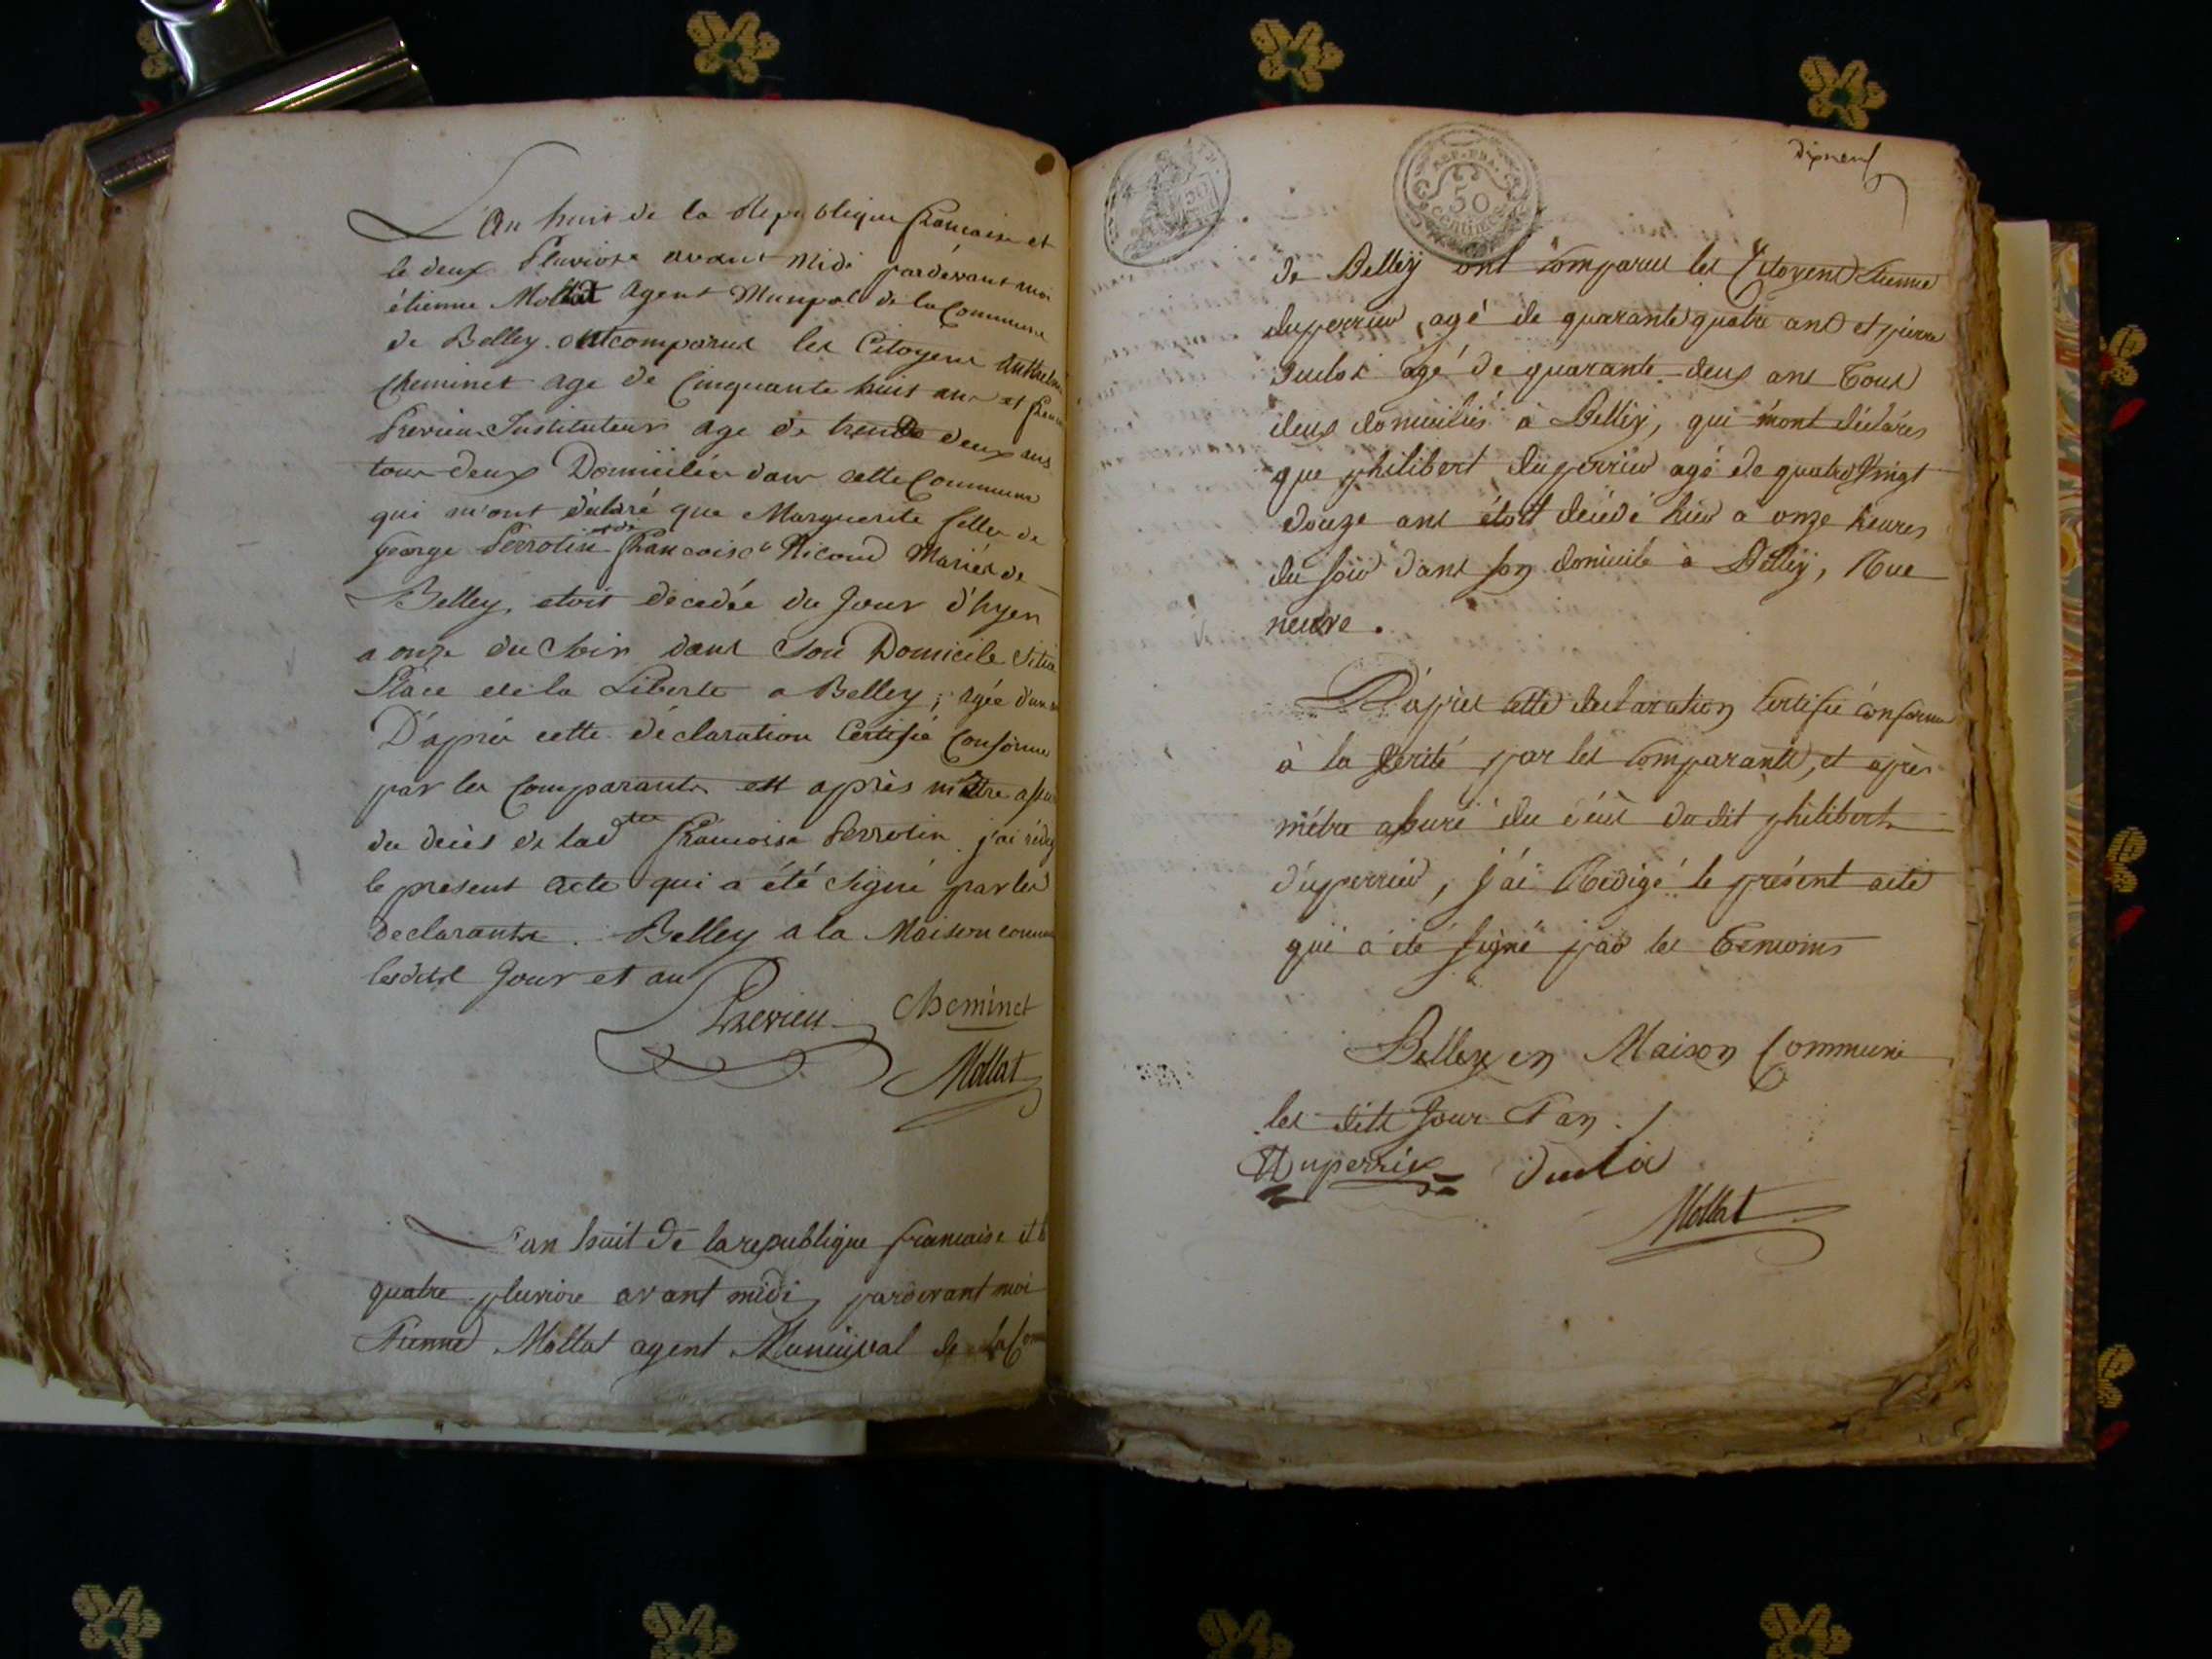 L'An huit de la République francaise et
le deux Pluviose avant Midi pardevant moi
étienne Mollat Agent Munipal de la Commune
de Belley. ont comparus les Citoyens Anthelme
Cheminet age de Cinquante huit ans et
Prerieu Instituteur age de trente deux ans
tous deux Domiciliés dans cette Commune
qui m'ont déclaré que Marguerite fille de
George Perrotin et de francoise Ricoud Mariés de
Belley, etoit décedée du Jour d'hyer
a onze du Soir dans Son Domicile Situé
Place de la Liberté a Belley; agée d'un
D'après cette déclaration Certifié Conforme
par les Comparants et après mêttre assu
du decès de ladte francoise Perrotin j'ai rédigé
le present acte qui a été Signé par les
declarants. Belley a la Maison commune
lesdits Jour et an
Prerieu Cheminet
Mollat
L'an huit de la republique francaise et le
quatre pluviose avant midi pardevant moi
Etienne Mollat agent Municipal de la Comm
dixneuf
REP. FRA.
50
centimes
50
de Belley ont comparus les Citoyens Etienne
duperrier, agé de quarante quatre ans et pierre
agé de quarante deux ans tous
deux domiciliés à Belley, qui m'ont déclarés
que philibert duperrier agé de quatre Vingt
douze ans étoit décédé hier a onze heures
du soir dans son domicile à Belley, Rue
neuve.
D'après cette déclaration Certifié conforme
à la Vérité par les comparants, et après
m'être assuré du décès du dit philibert
duperrier, j'ai Rédigé le présent acte
qui a été signé par les temoins
Belley en Maison Commune
les dits Jour & an.
Duperrier
Mollat